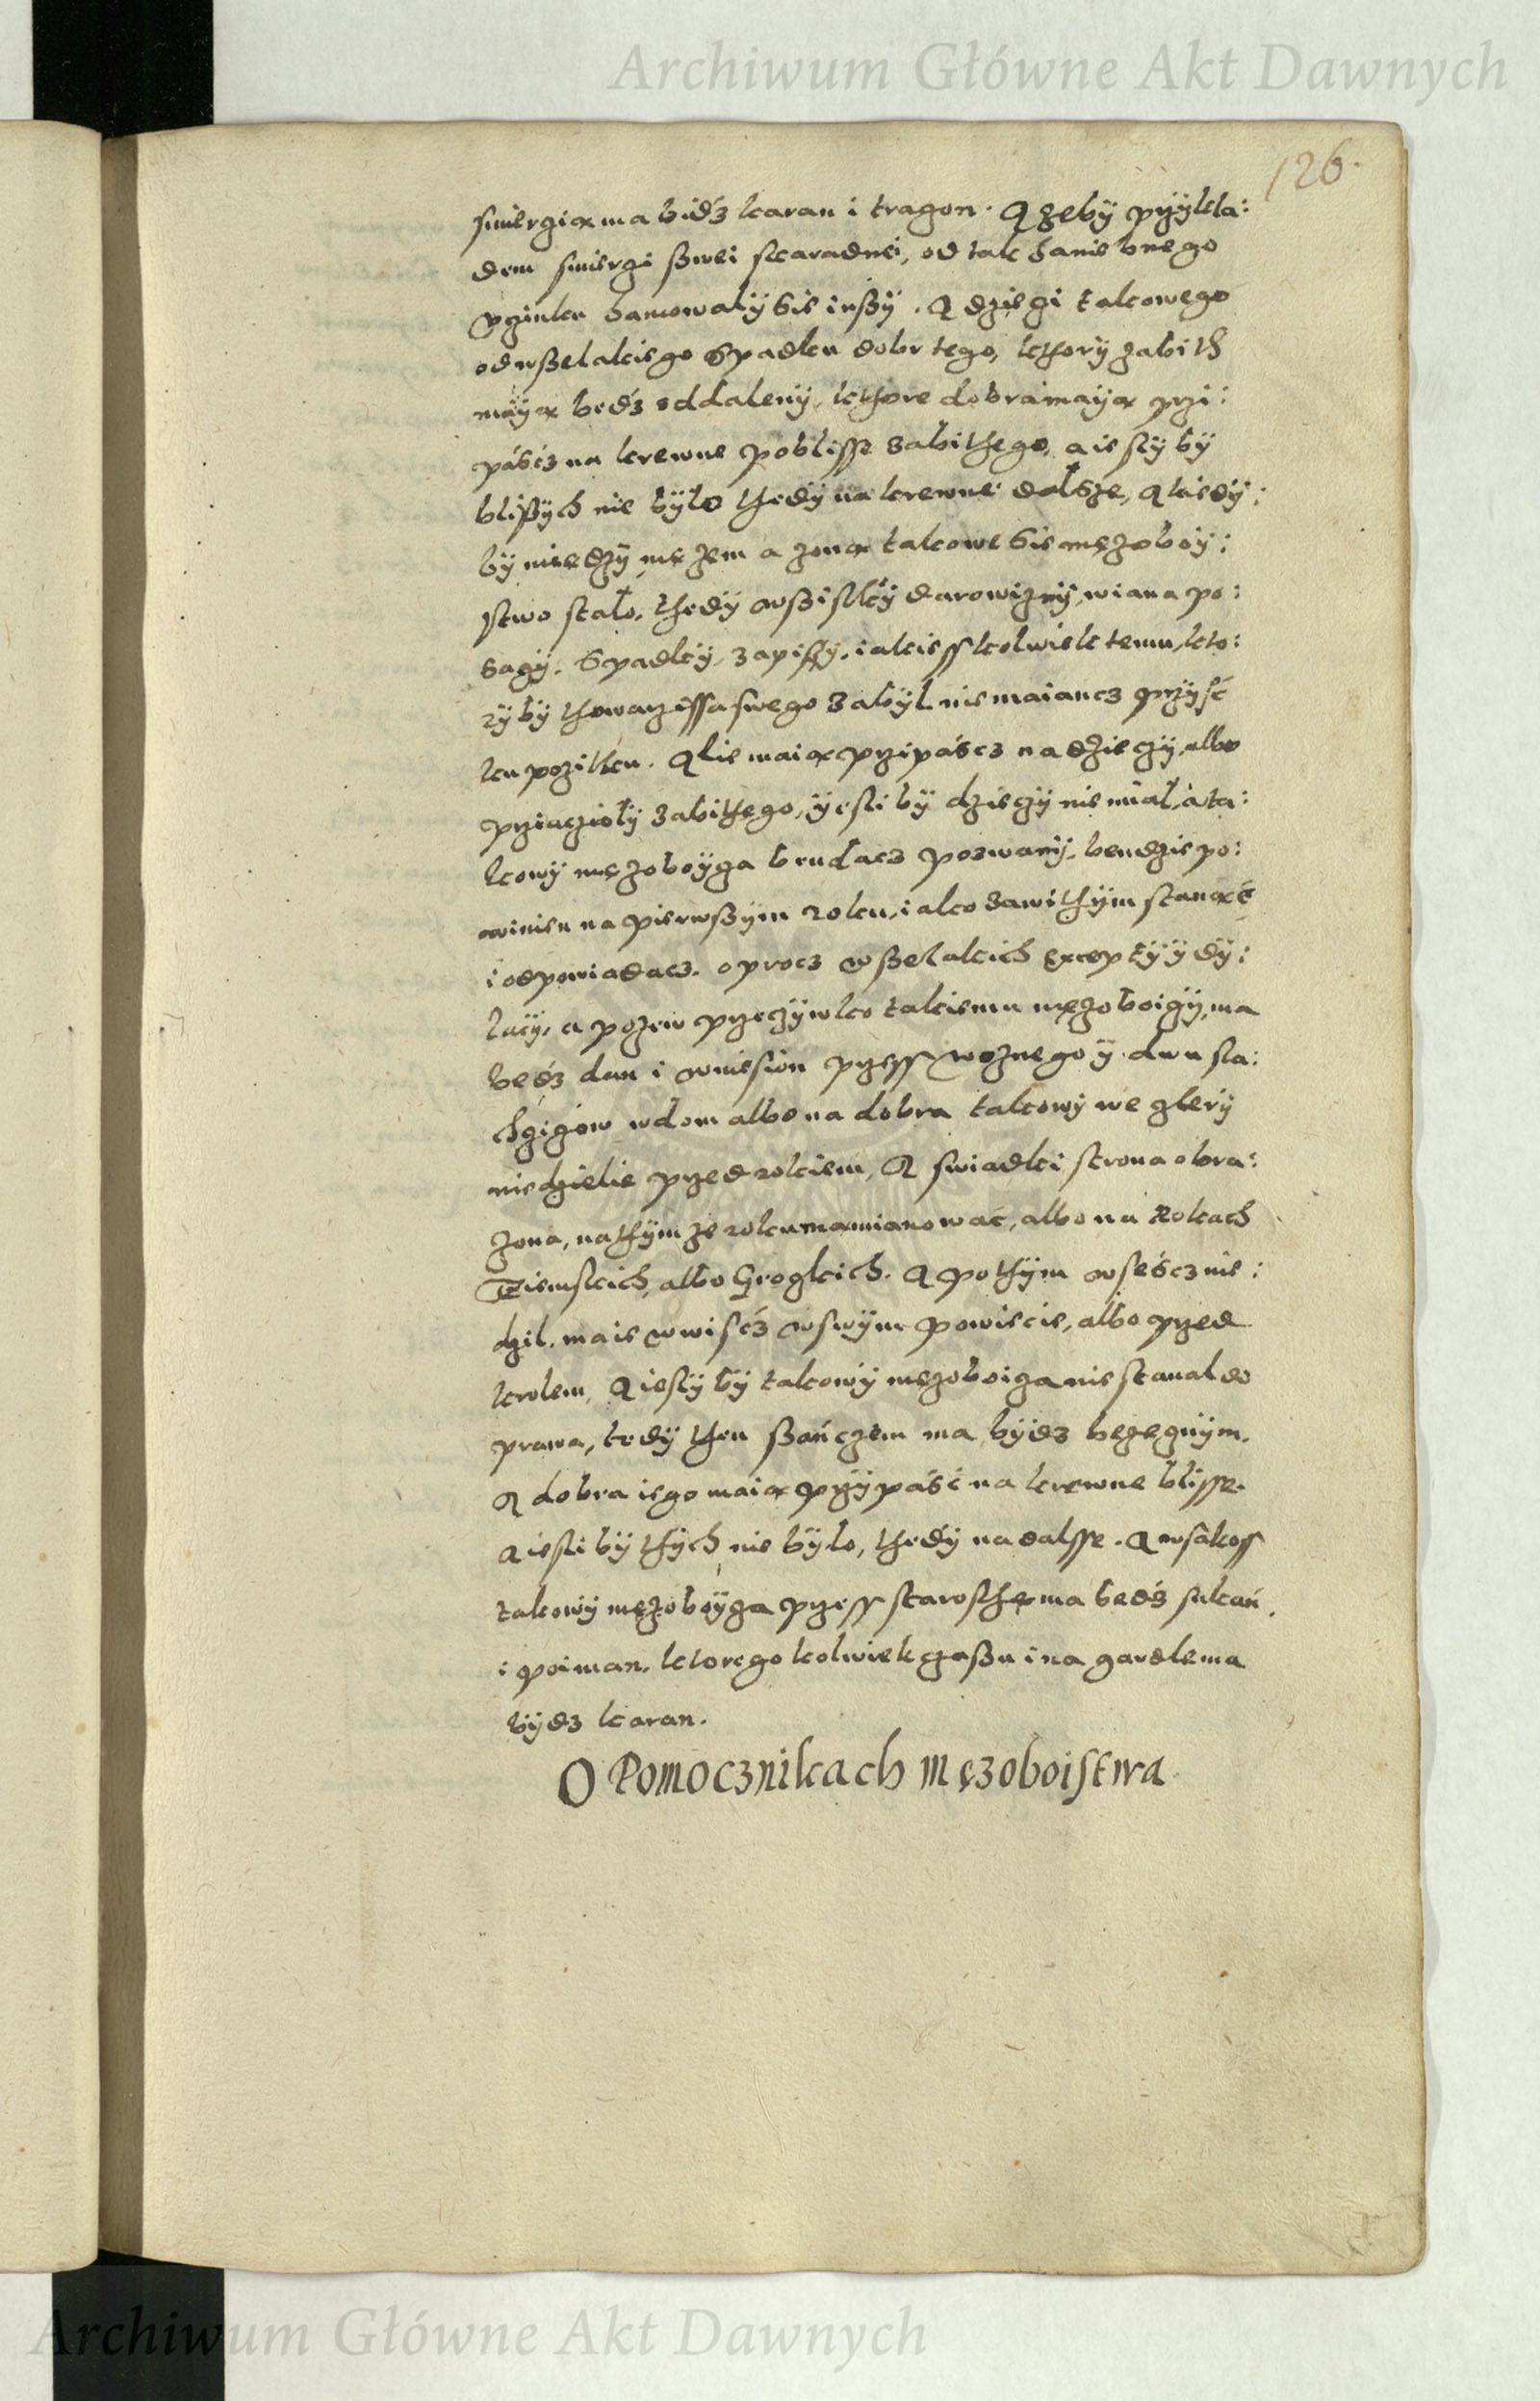 Archiwum Główne Akt Dawnych
126.
smierczią ma bidź karan i tracon. A zeby przykła:
dem smierci swei skaradnei, od tak hanie bnego
uczinku hamowaly sie inszy. A dzieci takowego
od wszelakiego spadku dobr tego, kthory zabith
mayą bedź oddaleny, kthore dobra mayą przi:
paścz na krewne poblisse zabithego, a iesly by
bliszych nie było thedy na krewne dalsze, A kiedy:
by miedzy mężem a zoną takowe sie męzoboy:
stwo stało, thedy wszistky darowizny, wiana po:
sagy, spadky, zapissy, iakiesskolwiek temu, kto:
ry by thowarzissa swego zabyl nie maiancz przysc
ku pozitku. Alie maią przipáscz na dzieczy, albo
prziacioły zabithego, yesli by dzieczy nie miał, a ta:
kowy męzoboyca bendacz pozwany, bendzie po:
winien na pierwszym roku, iako zawithym stanąć
i odpowiadacz. oprocz wszelakich exceptyy dy:
lacy, a pozew przeczywko takiemu męzoboicy, ma
bedź dan i wniesion przess woznego y dwu sla:
chcicow w dom albo na dobra takowy we cztery
niedzielie przed rokiem, A swiadki strona obra:
zona, na thym ze roku ma mianowac, albo na Rokach
Ziemskich, albo Grogkich. A pothym w sesćz nie:
dzil. maie wwiesćz w swym powiecie, albo przed
krolem, A iesly by takowy męzoboica nie stanal do
prawa, tedy then szańczem ma bydz bezecznym,
A dobra iego maią przypáść na krewne blisse.
A iesli by thych nie bylo, thedy na dalsse. A wsakoss
takowy męzoboyca przess starosthę ma bedź sukań,
i poiman. ktorego kolwiek czaszu i na gardle ma
bydz karan.
O Pomocznikach Męzoboistwa
Archiwum Główne Akt Dawnych